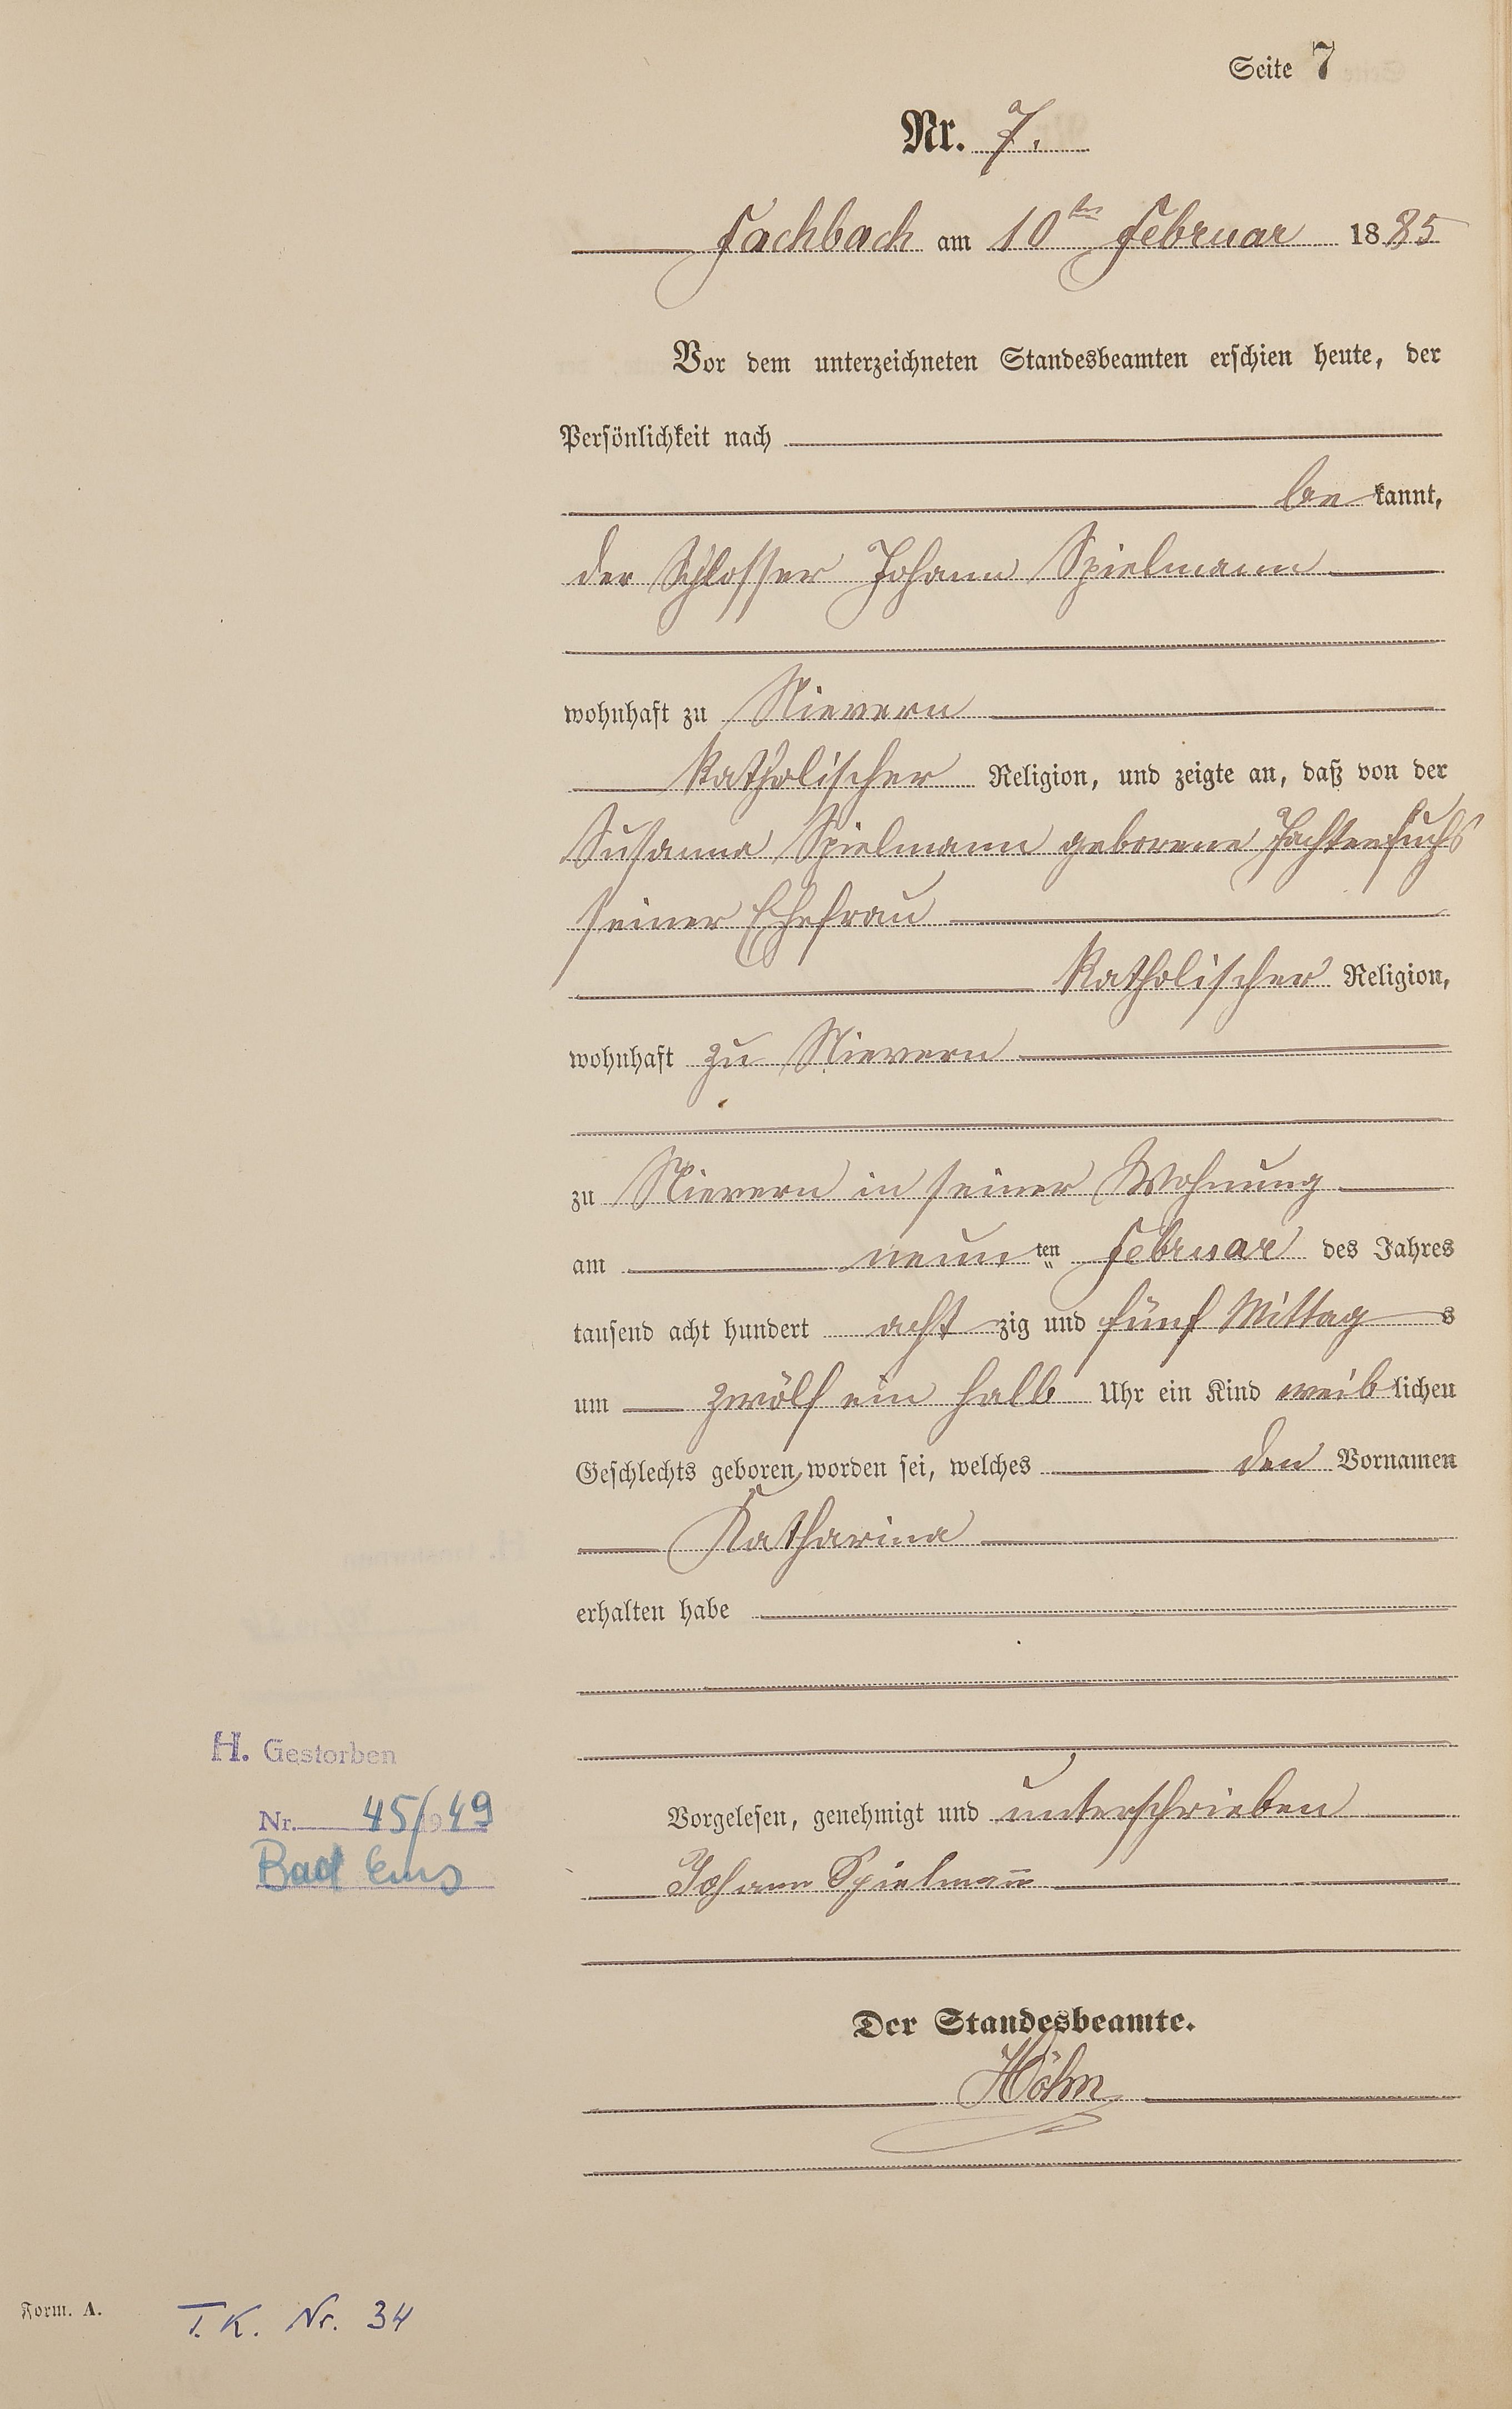 Seite 7
Nr. 7.
Fachbach am 10ten Februar 1885
Vor dem unterzeichneten Standesbeamten erschien heute, der
Persönlichkeit nach
be kannt,
der Schlosser Johann Spielmann
wohnhaft zu Nievern
katholischer Religion, und zeigte an, daß von der
Susanna Spielmann geborene
seiner Ehefrau
katholischer Religion,
wohnhaft zu Nievern
zu Nievern in seiner Wohnung
am neun ten Februar des Jahres
tausend acht hundert acht zig und fünf Mittag s
um zwölf ein halb Uhr ein Kind weib lichen
Geschlechts geboren worden sei, welches den Vornamen
Katharina
erhalten habe
H. Gestorben
Nr. 45/1949
Bad Ems
Vorgelesen, genehmigt und unterschrieben
Johann Spielmann̄
Der Standesbeamte.
Höhn
Form. A.
T. K. Nr. 34